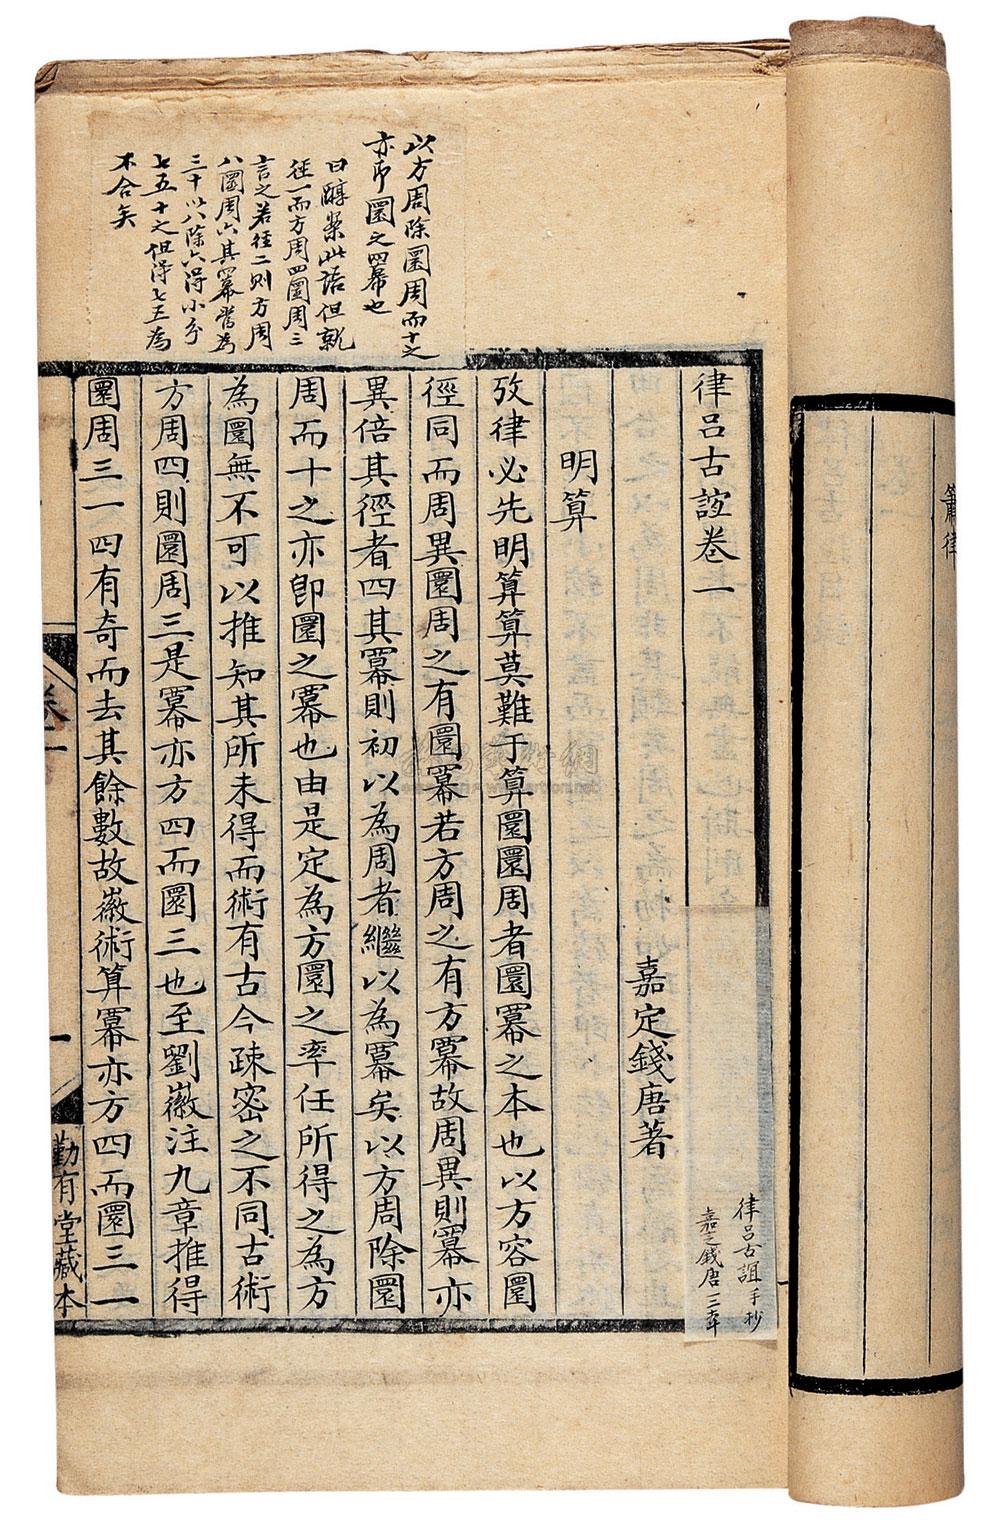 簫律
律呂古誼卷一
嘉定錢唐著
明算
攷律必先明算算莫難于算圜圜周者圜冪之本也以方容圜
徑同而周異圜周之有圜冪若方周之有方冪故周異則冪亦
異倍其徑者四其冪則初以為周者繼以為冪矣以方周除圜
周而十之亦即圜之冪也由是定為方圜之率任所得之為方
為圜無不可以推知其所未得而術有古今疎密之不同古術
方周四則圜周三是冪亦方四而圜三也至劉徽注九章推得
圜周三一四有奇而去其餘數故徽術算冪亦方四而圜三一
以方周除圜周而十之
亦即圜之冪也
曰醇案此語但就
徑一而方周四圜周三
言之若徑二則方周
八圜周六其冪當為
三十以八除六得小分
七五十之但得七五為
不合矣
律呂古誼手抄
嘉定錢唐 三本
卷一
一
勤有堂藏本